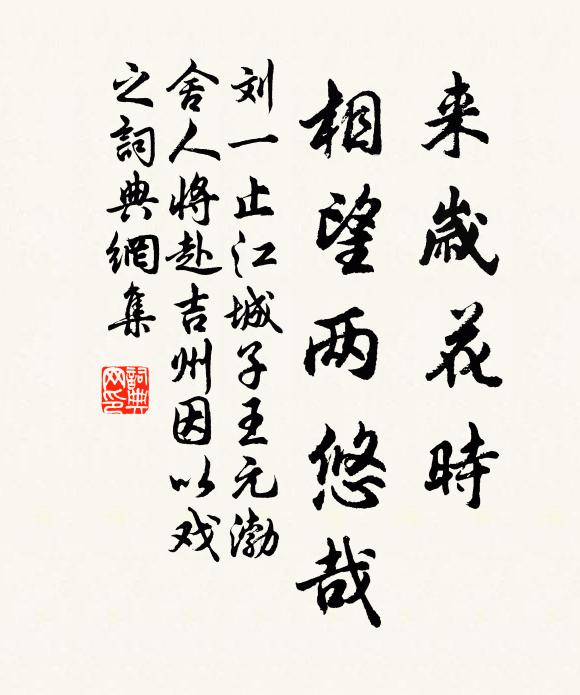 来歳花時
相望两悠哉
刘一止江城子王元渤
舍人将赴吉州因以戏
之詞典網集
詞典
网印